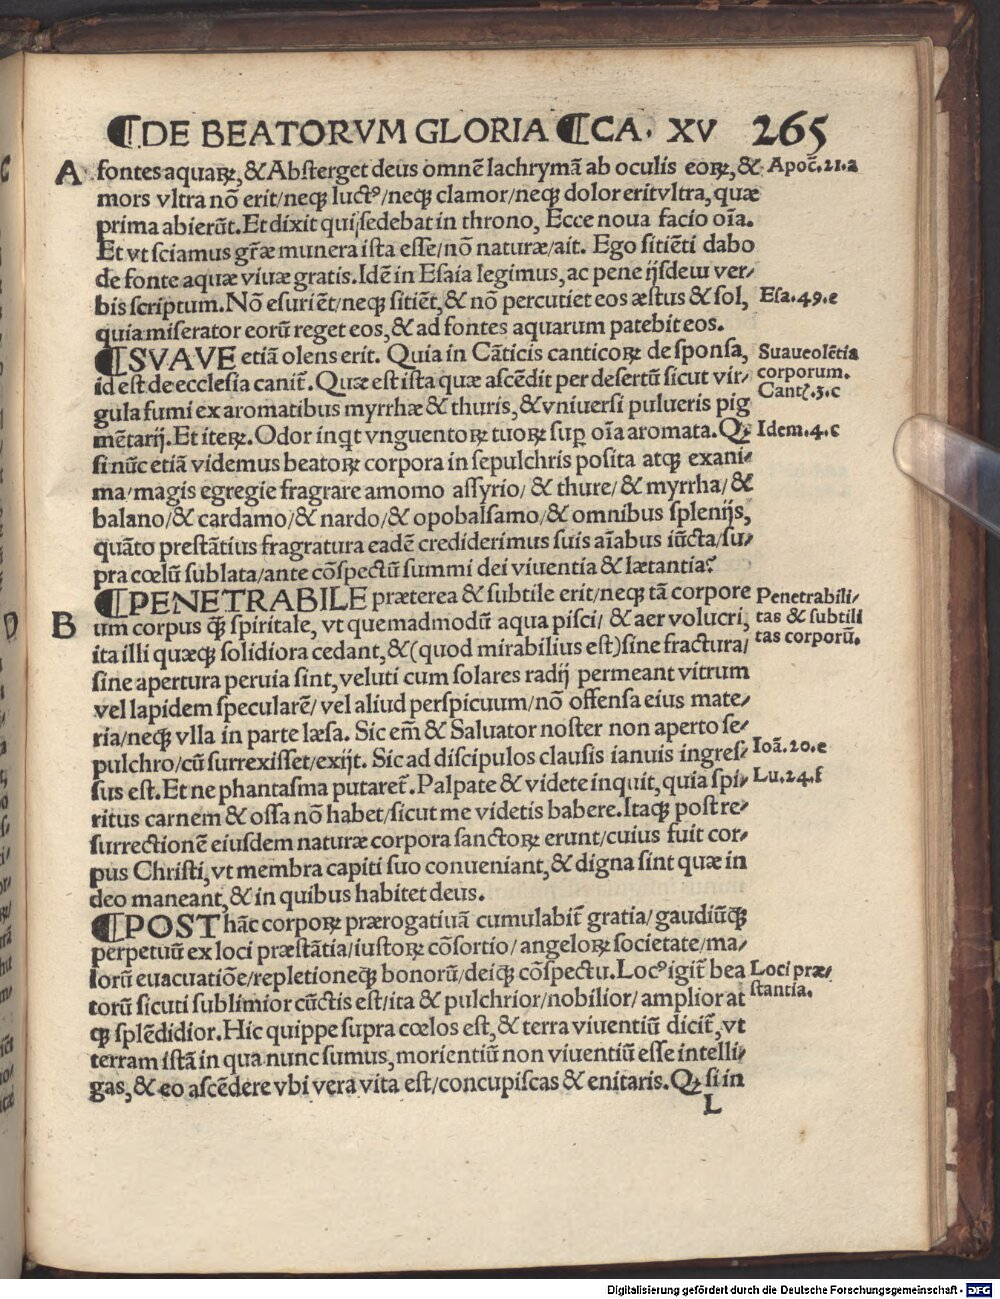 ¶DE BEATORVM GLORIA ¶CA. XV 265
A fontes aquaꝝ, & Absterget deus omnē lachrymā ab oculis eoꝝ, & Apoc̄.21.a
mors vltra nō erit/neqꝫ luctꝰ/neqꝫ clamor/neqꝫ dolor erit vltra, quæ
prima abierūt. Et dixit qui sedebat in throno, Ecce noua facio oīa.
Et vt sciamus gr̄æ munera ista esse/nō naturæ/ait. Ego sitiēti dabo
de fonte aquæ viuæ gratis. Idē in Esaia legimus, ac pene ijsdem ver⸗
bis scriptum. Nō esuriēt/neqꝫ sitiēt, & nō percutiet eos æstus & sol, Esa.49.e
quia miserator eorū reget eos, & ad fontes aquarum patebit eos.
¶SVAVE etiā olens erit. Quia in Cāticis canticoꝝ de sponsa, Suaueolētia
id est de ecclesia canit̄. Quæ est ista quæ ascēdit per desertū sicut vir⸗ corporum.
Cantꝭ.3.c
gula fumi ex aromatibus myrrhæ & thuris, & vniuersi pulueris pig
mētarij. Et iteꝝ. Odor inqt vnguentoꝝ tuoꝝ suꝑ oīa aromata. Qꝫ Idem.4.c
si nūc etiā videmus beatoꝝ corpora in sepulchris posita atqꝫ exani⸗
ma/magis egregie fragrare amomo assyrio/ & thure/ & myrrha/ &
balano/& cardamo/& nardo/& opobalsamo/& omnibus splenijs,
quāto prestātius fragratura eadē crediderimus suis aīabus iūcta/su⸗
pra cœlū sublata/ante cōspectū summi dei viuentia & lætantia?
¶PENETRABILE præterea & subtile erit/neqꝫ tā corpore Penetrabili/
B um corpus qꝫ̄ spiritale, vt quemadmodū aqua pisci/ & aer volucri, tas & subtili
ita illi quæqꝫ solidiora cedant, & (quod mirabilius est) sine fractura/ tas corporū.
sine apertura peruia sint, veluti cum solares radij permeant vitrum
vel lapidem specularē/ vel aliud perspicuum/nō offensa eius mate⸗
ria/neqꝫ vlla in parte læsa. Sic em̄ & Saluator noster non aperto se⸗
pulchro/cū surrexisset/exijt. Sic ad discipulos clausis ianuis ingres⸗ Ioā.20.e
sus est. Et ne phantasma putaret̄. Palpate & videte inquit, quia spi⸗ Lu.24.f
ritus carnem & ossa nō habet/sicut me videtis babere. Itaqꝫ post re⸗
surrectionē eiusdem naturæ corpora sanctoꝝ erunt/cuius fuit cor⸗
pus Christi, vt membra capiti suo conueniant, & digna sint quæ in
deo maneant, & in quibus habitet deus.
¶POST hāc corpoꝝ prærogatiuā cumulabit̄ gratia/gaudiūqꝫ
perpetuū ex loci præstātia/iustoꝝ cōsortio/ angeloꝝ societate/ma⸗
lorū euacuatiōe/repletioneqꝫ bonorū/deiqꝫ cōspectu. Locꝰ igit̄ bea Loci præ⸗
torū sicuti sublimior cūctis est/ita & pulchrior/nobilior/ amplior at stantia.
qꝫ splēdidior. Hic quippe supra cœlos est, & terra viuentiū dicit̄, vt
terram istā in qua nunc sumus, morientiū non viuentiū esse intelli⸗
gas, & eo ascēdere vbi vera vita est/concupiscas & enitaris. Qꝫ si in
L
Digitalisierung gefördert durch die Deutsche Forschungsgemeinschaft - DFG